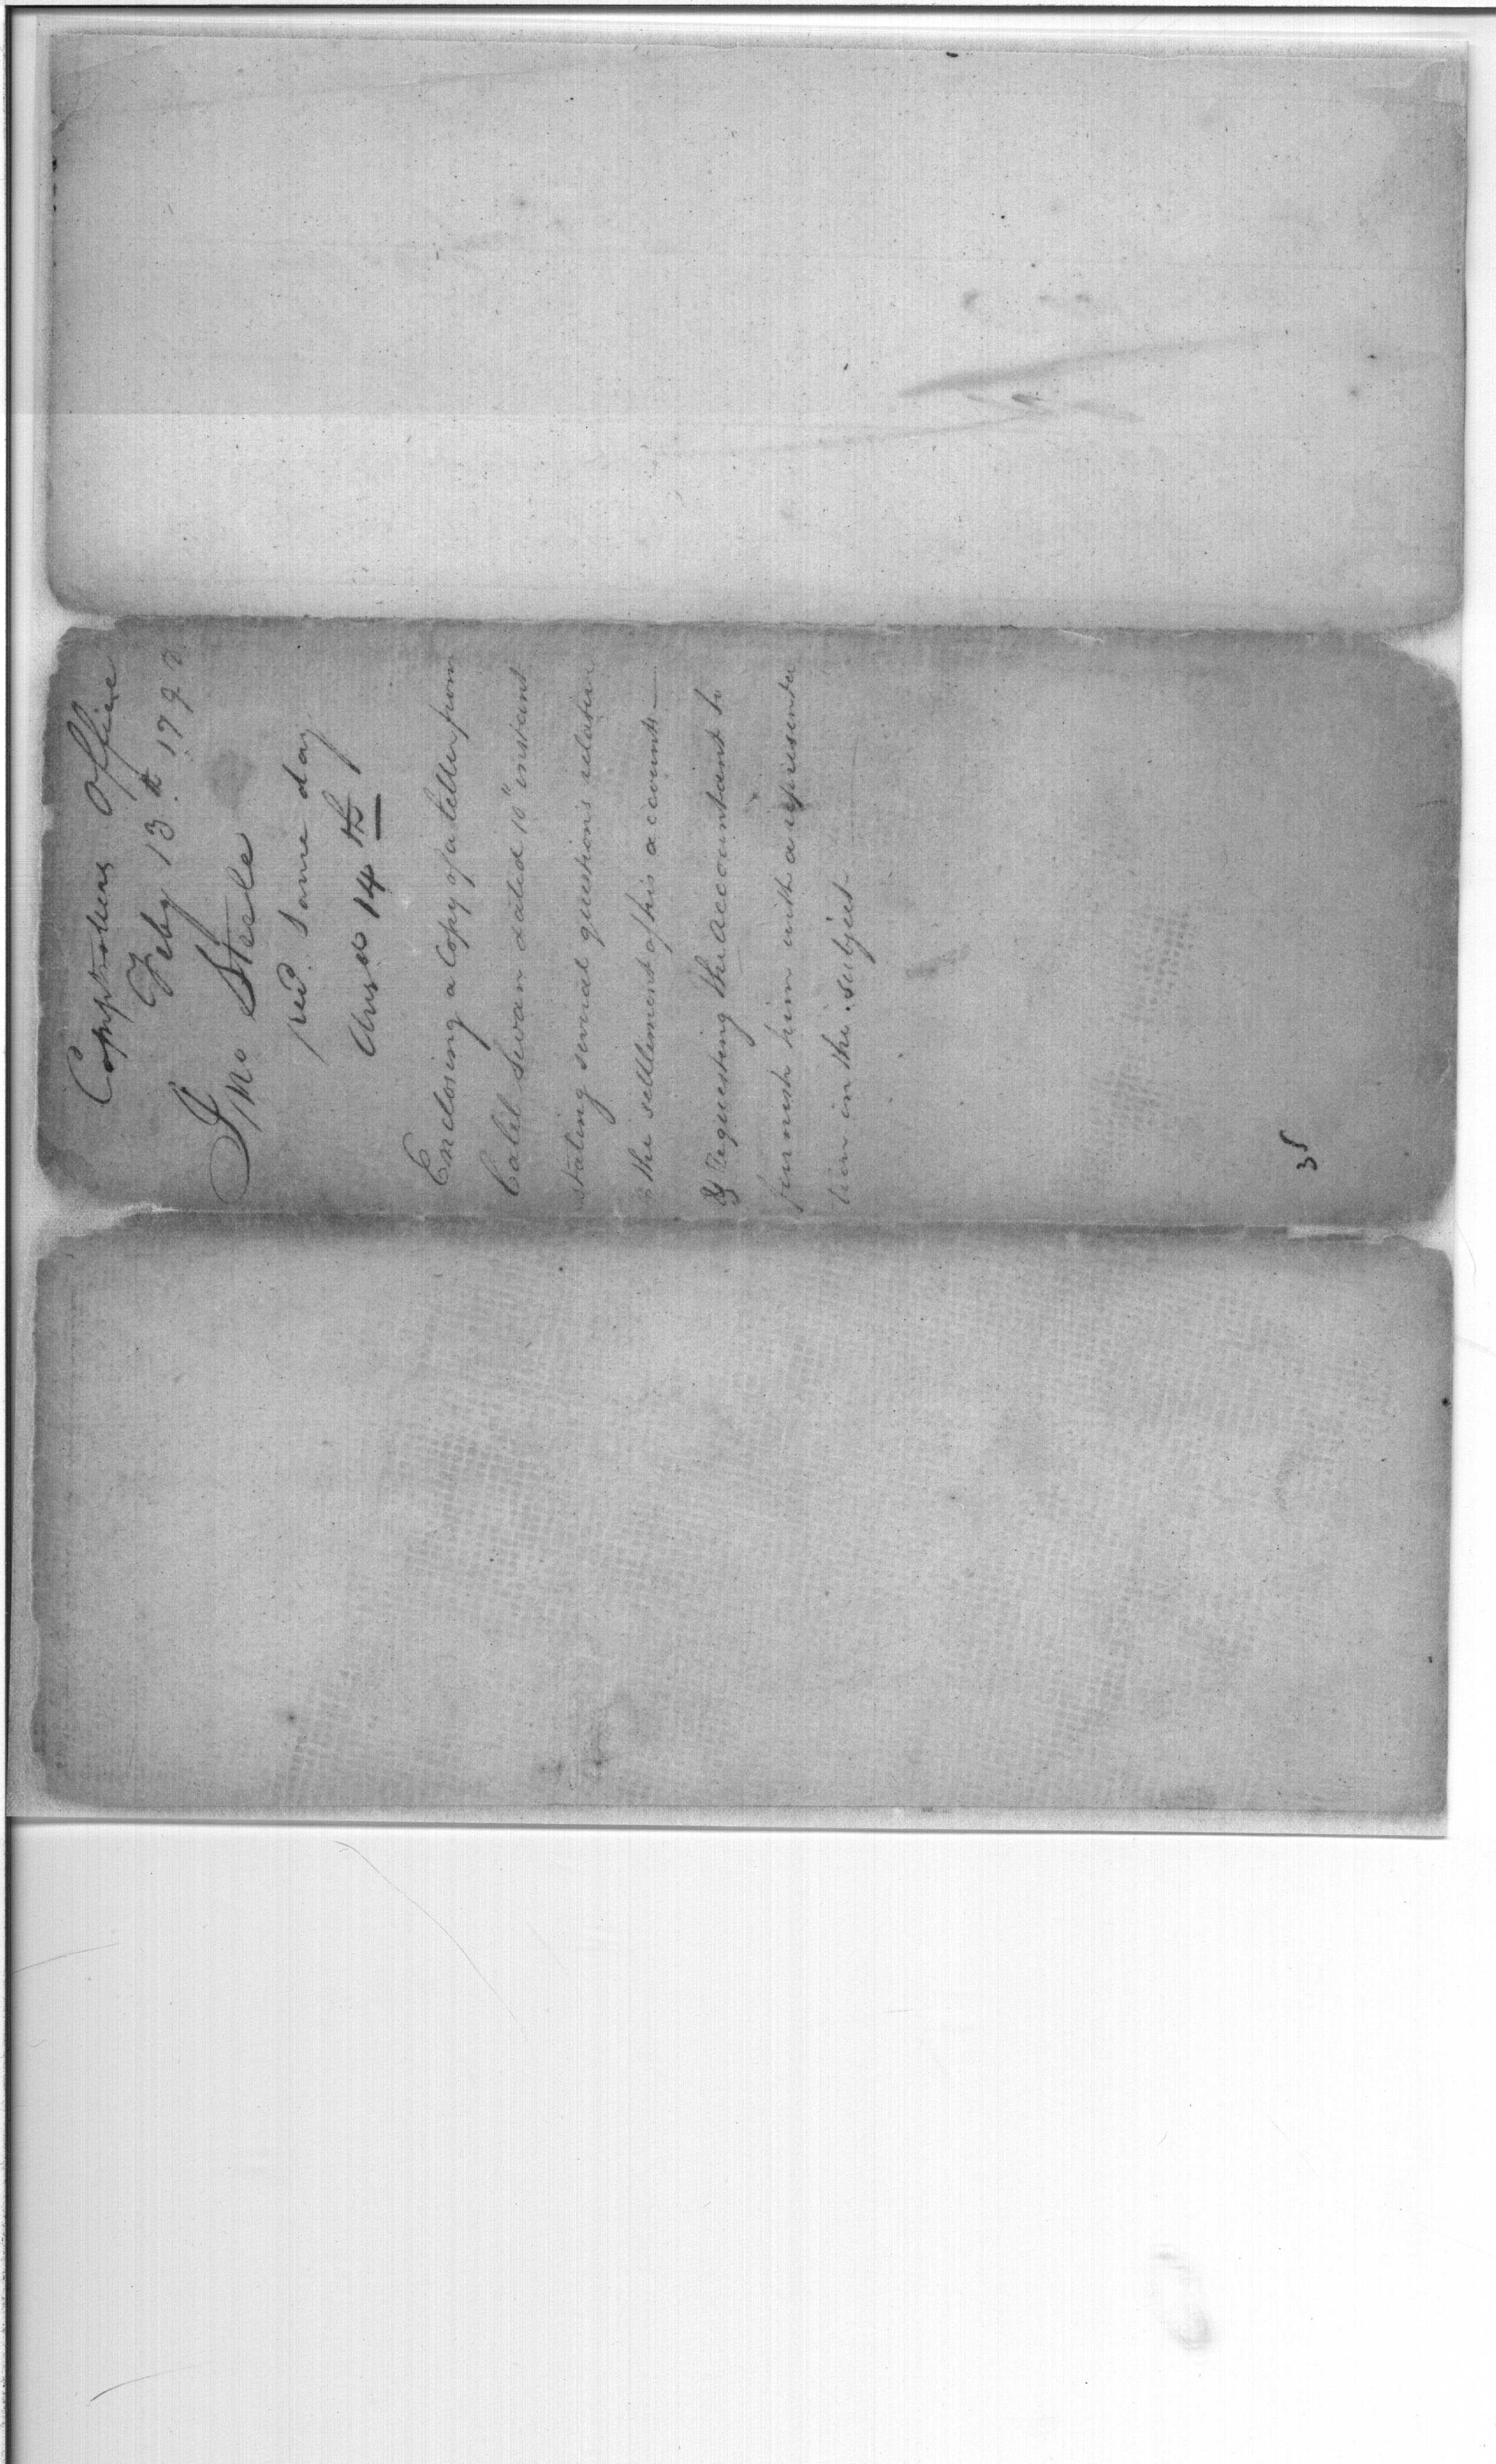 Comptrollers Office
Feby 13th 1798
Jno Steele
recd. same day
Ansd 14th
Enclosing a Copy of a letter from
Caleb Swan dated 10" instant
stating several questions relative
to the settlement of his accounts—
& Requesting the accountant to
furnish him with a representa
tion on the subject—
35